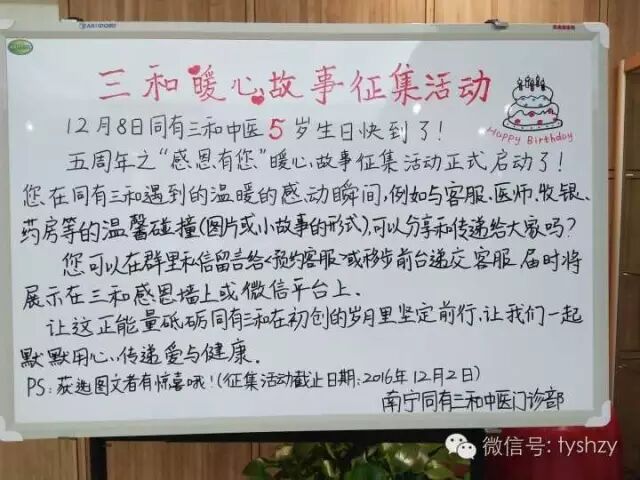 三和暖心故事征集活动
12月8日同有三和中医5岁生日快到了！
Happy Birthday
五周年之“感恩有您”暖心故事征集活动正式启动了！
您在同有三和遇到的温暖的感动瞬间，例如与客服、医师、收银、
药房等的温馨碰撞(图片或小故事的形式),可以分享和传递给大家吗？
您可以在群里私信留言给<预约客服>或移步前台递交客服届时将
展示在三和感恩墙上或微信平台上.
让这正能量砥砺同有三和在初创的岁月里坚定前行,让我们一起
默默用心,传递爱与健康.
PS:获选图文者有惊喜哦!(征集活动截止日期:2016年12月2日)
南宁同有三和中医门诊部
微信号: tyshzy